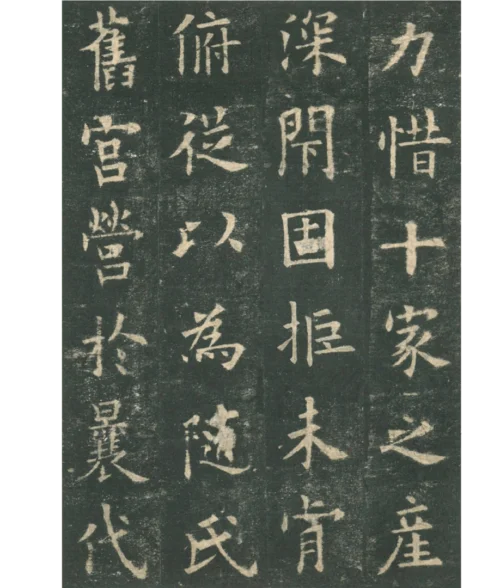 力惜十家之産
深閇固拒未肯
俯從以為随氏
舊宮營於曩代